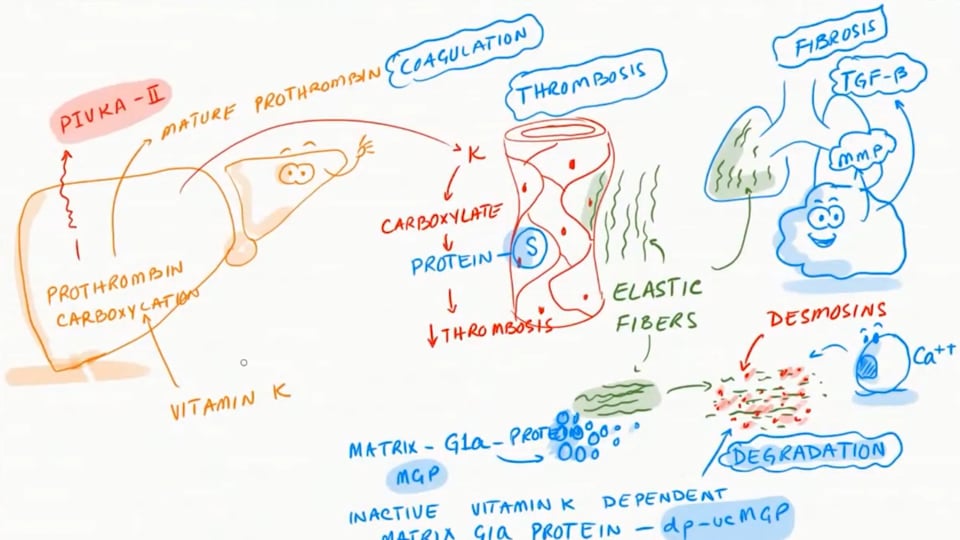 COAGULATION
PIVKA-II
MATURE PROTHROMBIN
THROMBOSIS
FIBROSIS
TGF-β
MMP
K
CARBOXYLATE
PROTEIN - S
↓ THROMBOSIS
PROTHROMBIN
CARBOXYLATION
VITAMIN K
ELASTIC
FIBERS
DESMOSINS
Ca++
MATRIX-Gla-PROTEIN
MGP
DEGRADATION
INACTIVE VITAMIN K DEPENDENT
MATRIX Gla PROTEIN - dp-ucMGP